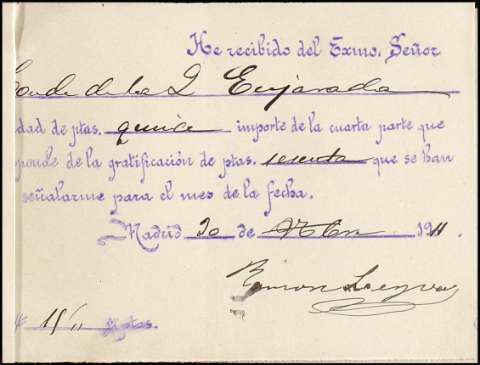 He recibido del Exmo. Señor
Conde de la Q Enjarada
dad de ptas. quince importe de la cuarta parte que
sponde de la gratificación de ptas. sesenta que se han
señalarme para el mes de la fecha.
Madrid 20 de 1911
Ramon
15 ptas.